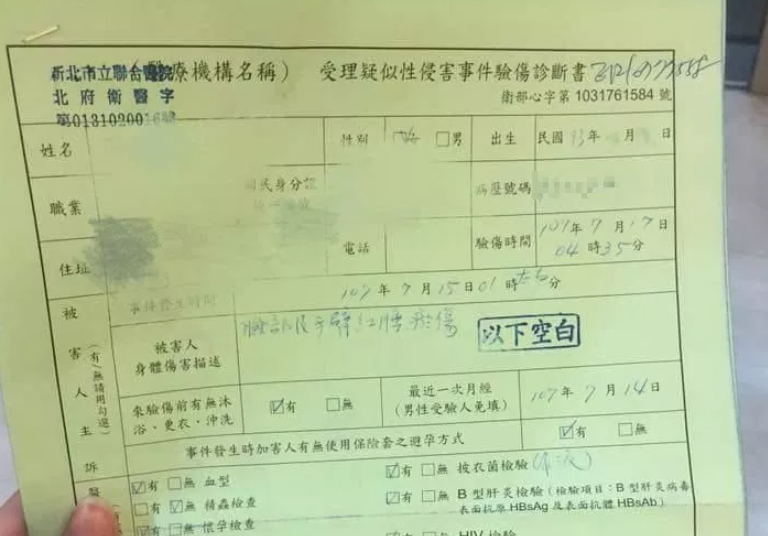 新北市立聯合醫院(醫療機構名稱) 受理疑似性侵害事件驗傷診斷書
北府衛醫字
衛部心字第 1031761584 號
姓名 性別 □男 出生 民國 93年 月 日
職業 國民身分證 病歷號碼
住址 電話 驗傷時間 107年7月17日
04時35分
事件發生時間 107年7月15日01時 分
被害人主訴
(有/無請用勾選)
被害人
身體傷害描述
臉部及手臂紅腫瘀傷 以下空白
來驗傷前有無沐
浴、更衣、沖洗
☑有 □無
最近一次月經
(男性受驗人免填)
107年7月14日
事件發生時加害人有無使用保險套之避孕方式 ☑有 □無
☑有 □無 血型 ☑有 □無 披衣菌檢驗
□有 ☑無 精蟲檢查 ☑有 □無 B型肝炎檢驗(檢驗項目:B型肝炎病毒
表面抗原HBsAg及表面抗體HBsAb)
☑有 □無 懷孕檢查
HIV 檢驗